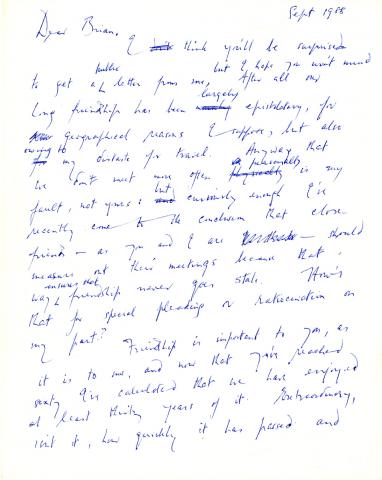 Sept 1988
Dear Brian,
I think you'll be surprised
to get a public letter from me, but I hope you won't mind
After all our
long friendship has been largely epistolary, for
geographical reasons I suppose, but also
owing to my distaste for travel. Anyway that
we don't meet more often is my
fault, not yours: but curiously enough I've
recently come to the conclusion that close
friends — as you and I are — should
measure out their meetings because that
way ensures that friendship never goes stale. How's
that for special pleading or ratiocination on
my part? Friendship is important to you, as
it is to me, and now that you've reached
sixty I've calculated that we have enjoyed
at least thirty years of it. Extraordinary,
isn't it, how quickly it has passed and